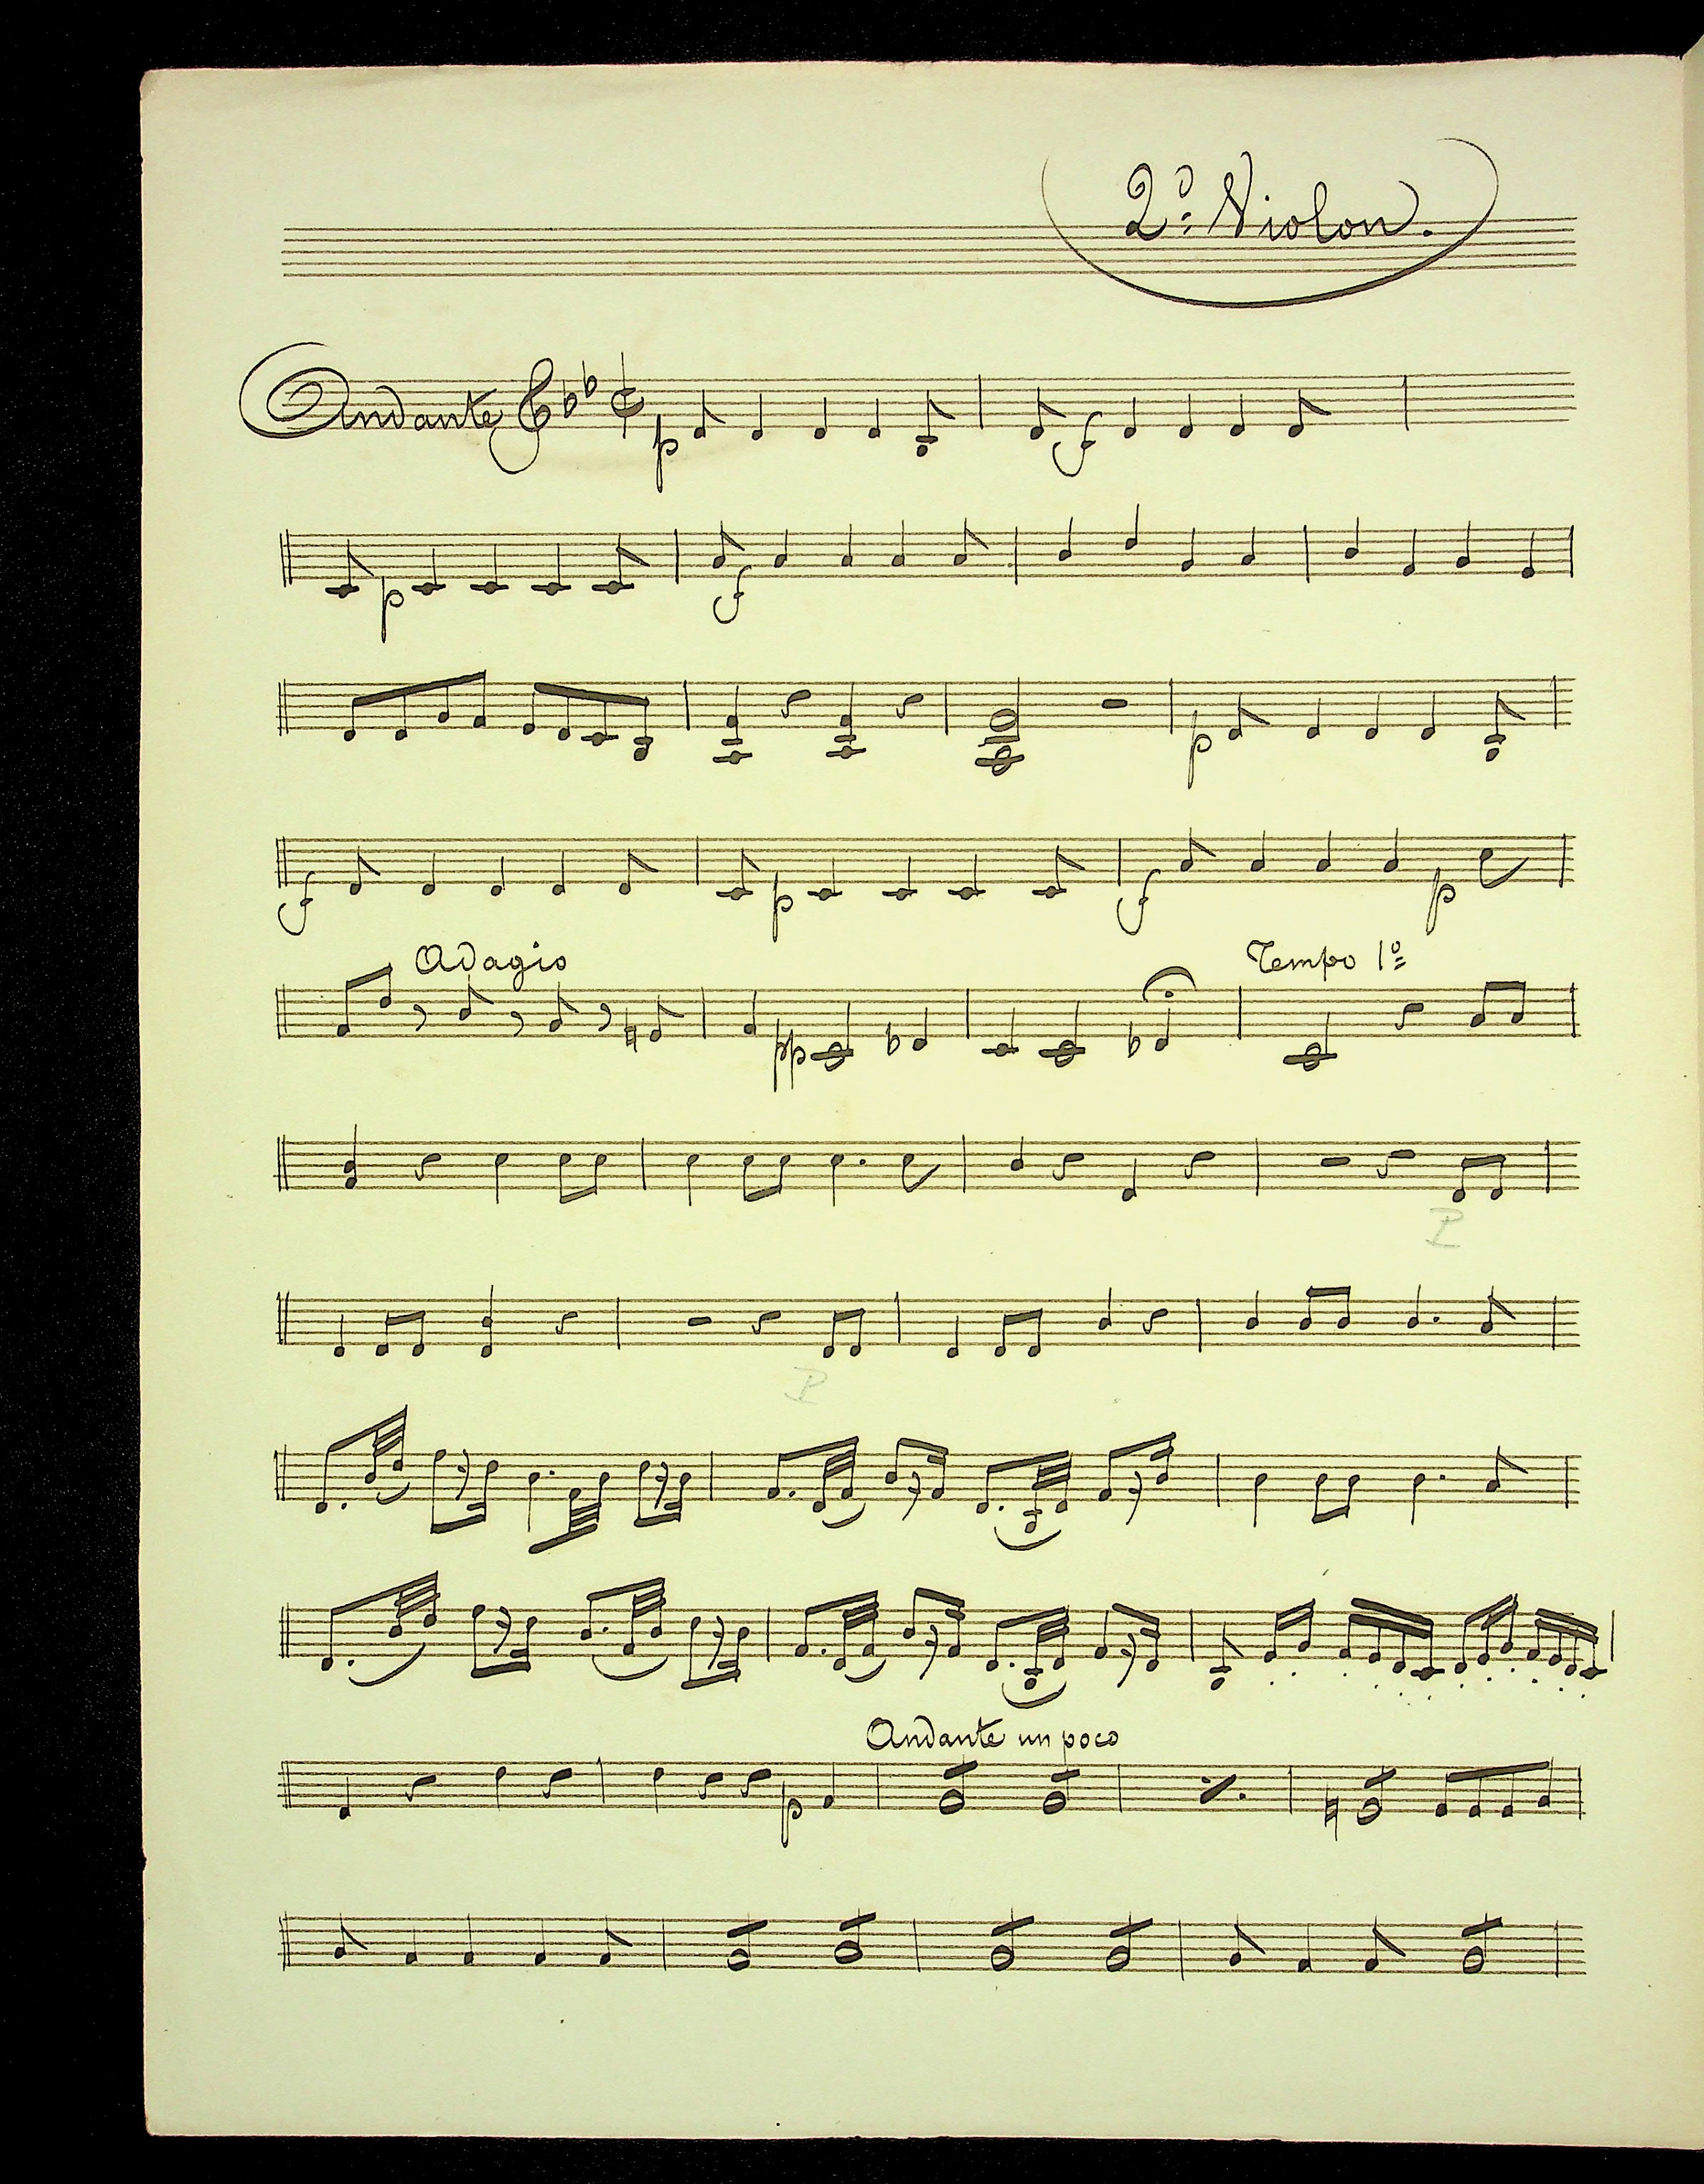 2º Violon.
Andante p f
p f
p
f p f p
Adagio Tempo 1º
pp
P
P
Andante un poco
p